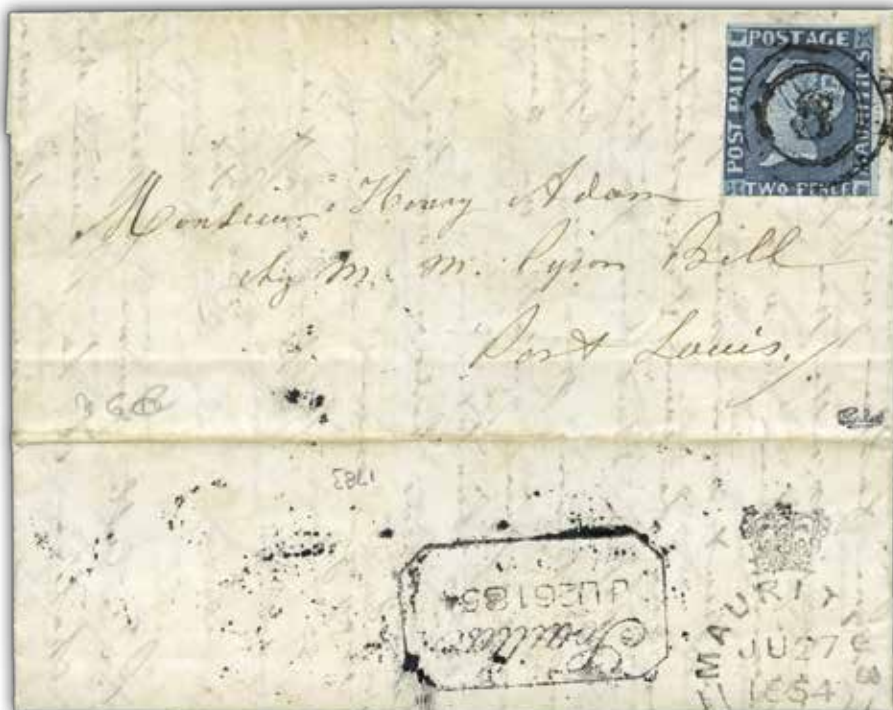 POSTAGE
POST PAID
MAURITIUS
TWO PENCE
3
Monsieur Henry Adam
chez M. M. Pyson Bell
Port Louis.
1783
JU 26 1854
MAURITI
JU 27
1854